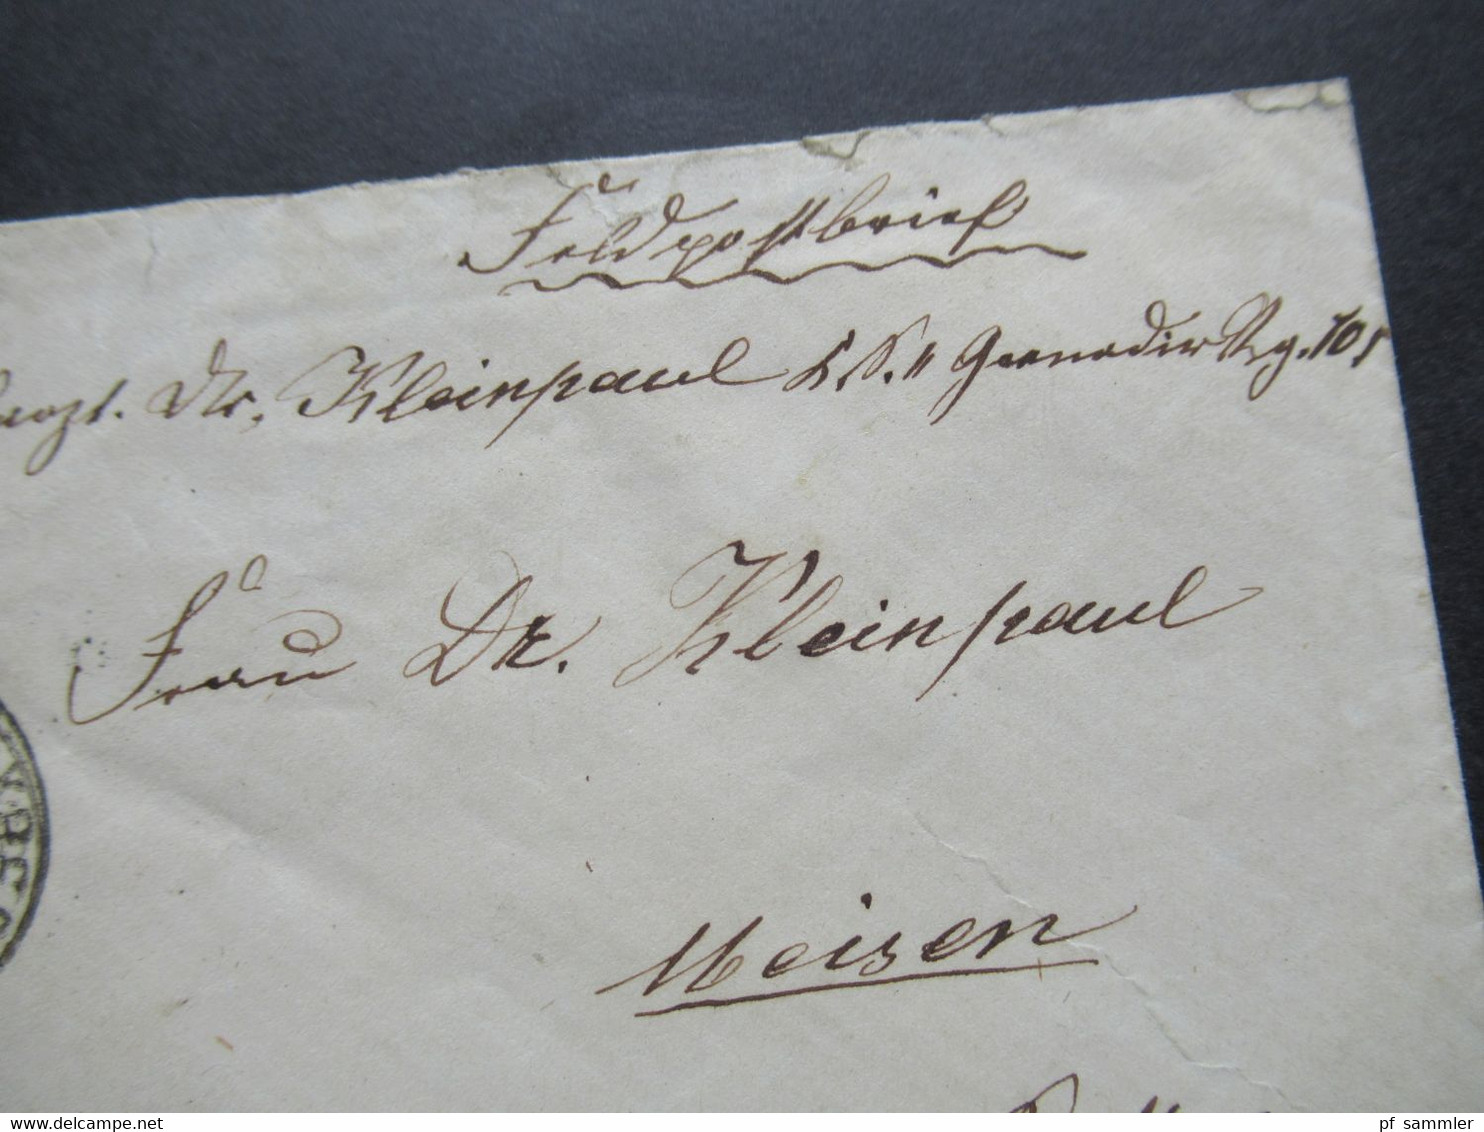 Feldpostbrief
arzt. Dr. Kleinpaul K. S. Grenadir Rg. 101
Frau Dr. Kleinpaul
Meisen
delcampe.net
pf_sammler